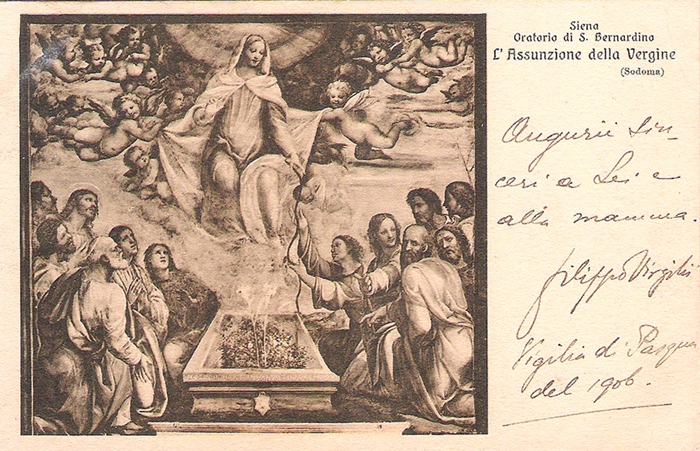 Siena
Oratorio di S. Bernardino
L'Assunzione della Vergine
(Sodoma)
Augurii sin-
ceri a Lei e
alla mamma.
Filippo Virgilii
Vigilia di Pasqua
del 1906.